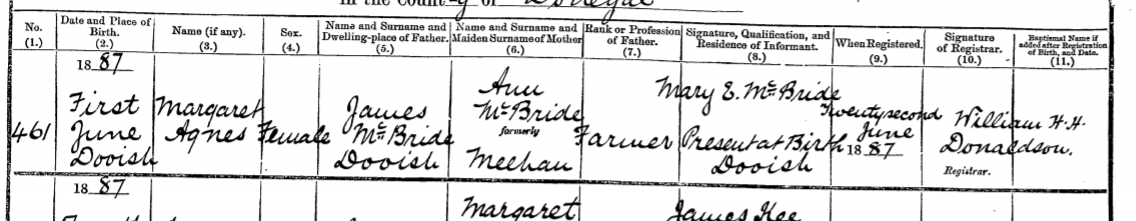 In the County of Donegal
No. (1.) Date and Place of Birth. (2.) Name (if any). (3.) Sex. (4.) Name and Surname and Dwelling-place of Father. (5.) Name and Surname and Maiden Surname of Mother (6.) Rank or Profession of Father. (7.) Signature, Qualification, and Residence of Informant. (8.) When Registered. (9.) Signature of Registrar. (10.) Baptismal Name if added after Registration of Birth, and Date. (11.)
461
1887
First
June
Dooish
Margaret
Agnes
Female
James
McBride
Dooish
Ann
McBride
formerly
Meehan
Farmer
Mary E. McBride
Present at Birth
Dooish
Twentysecond
June
1887
William H. H.
Donaldson.
Registrar.
1887
Margaret
James Kee